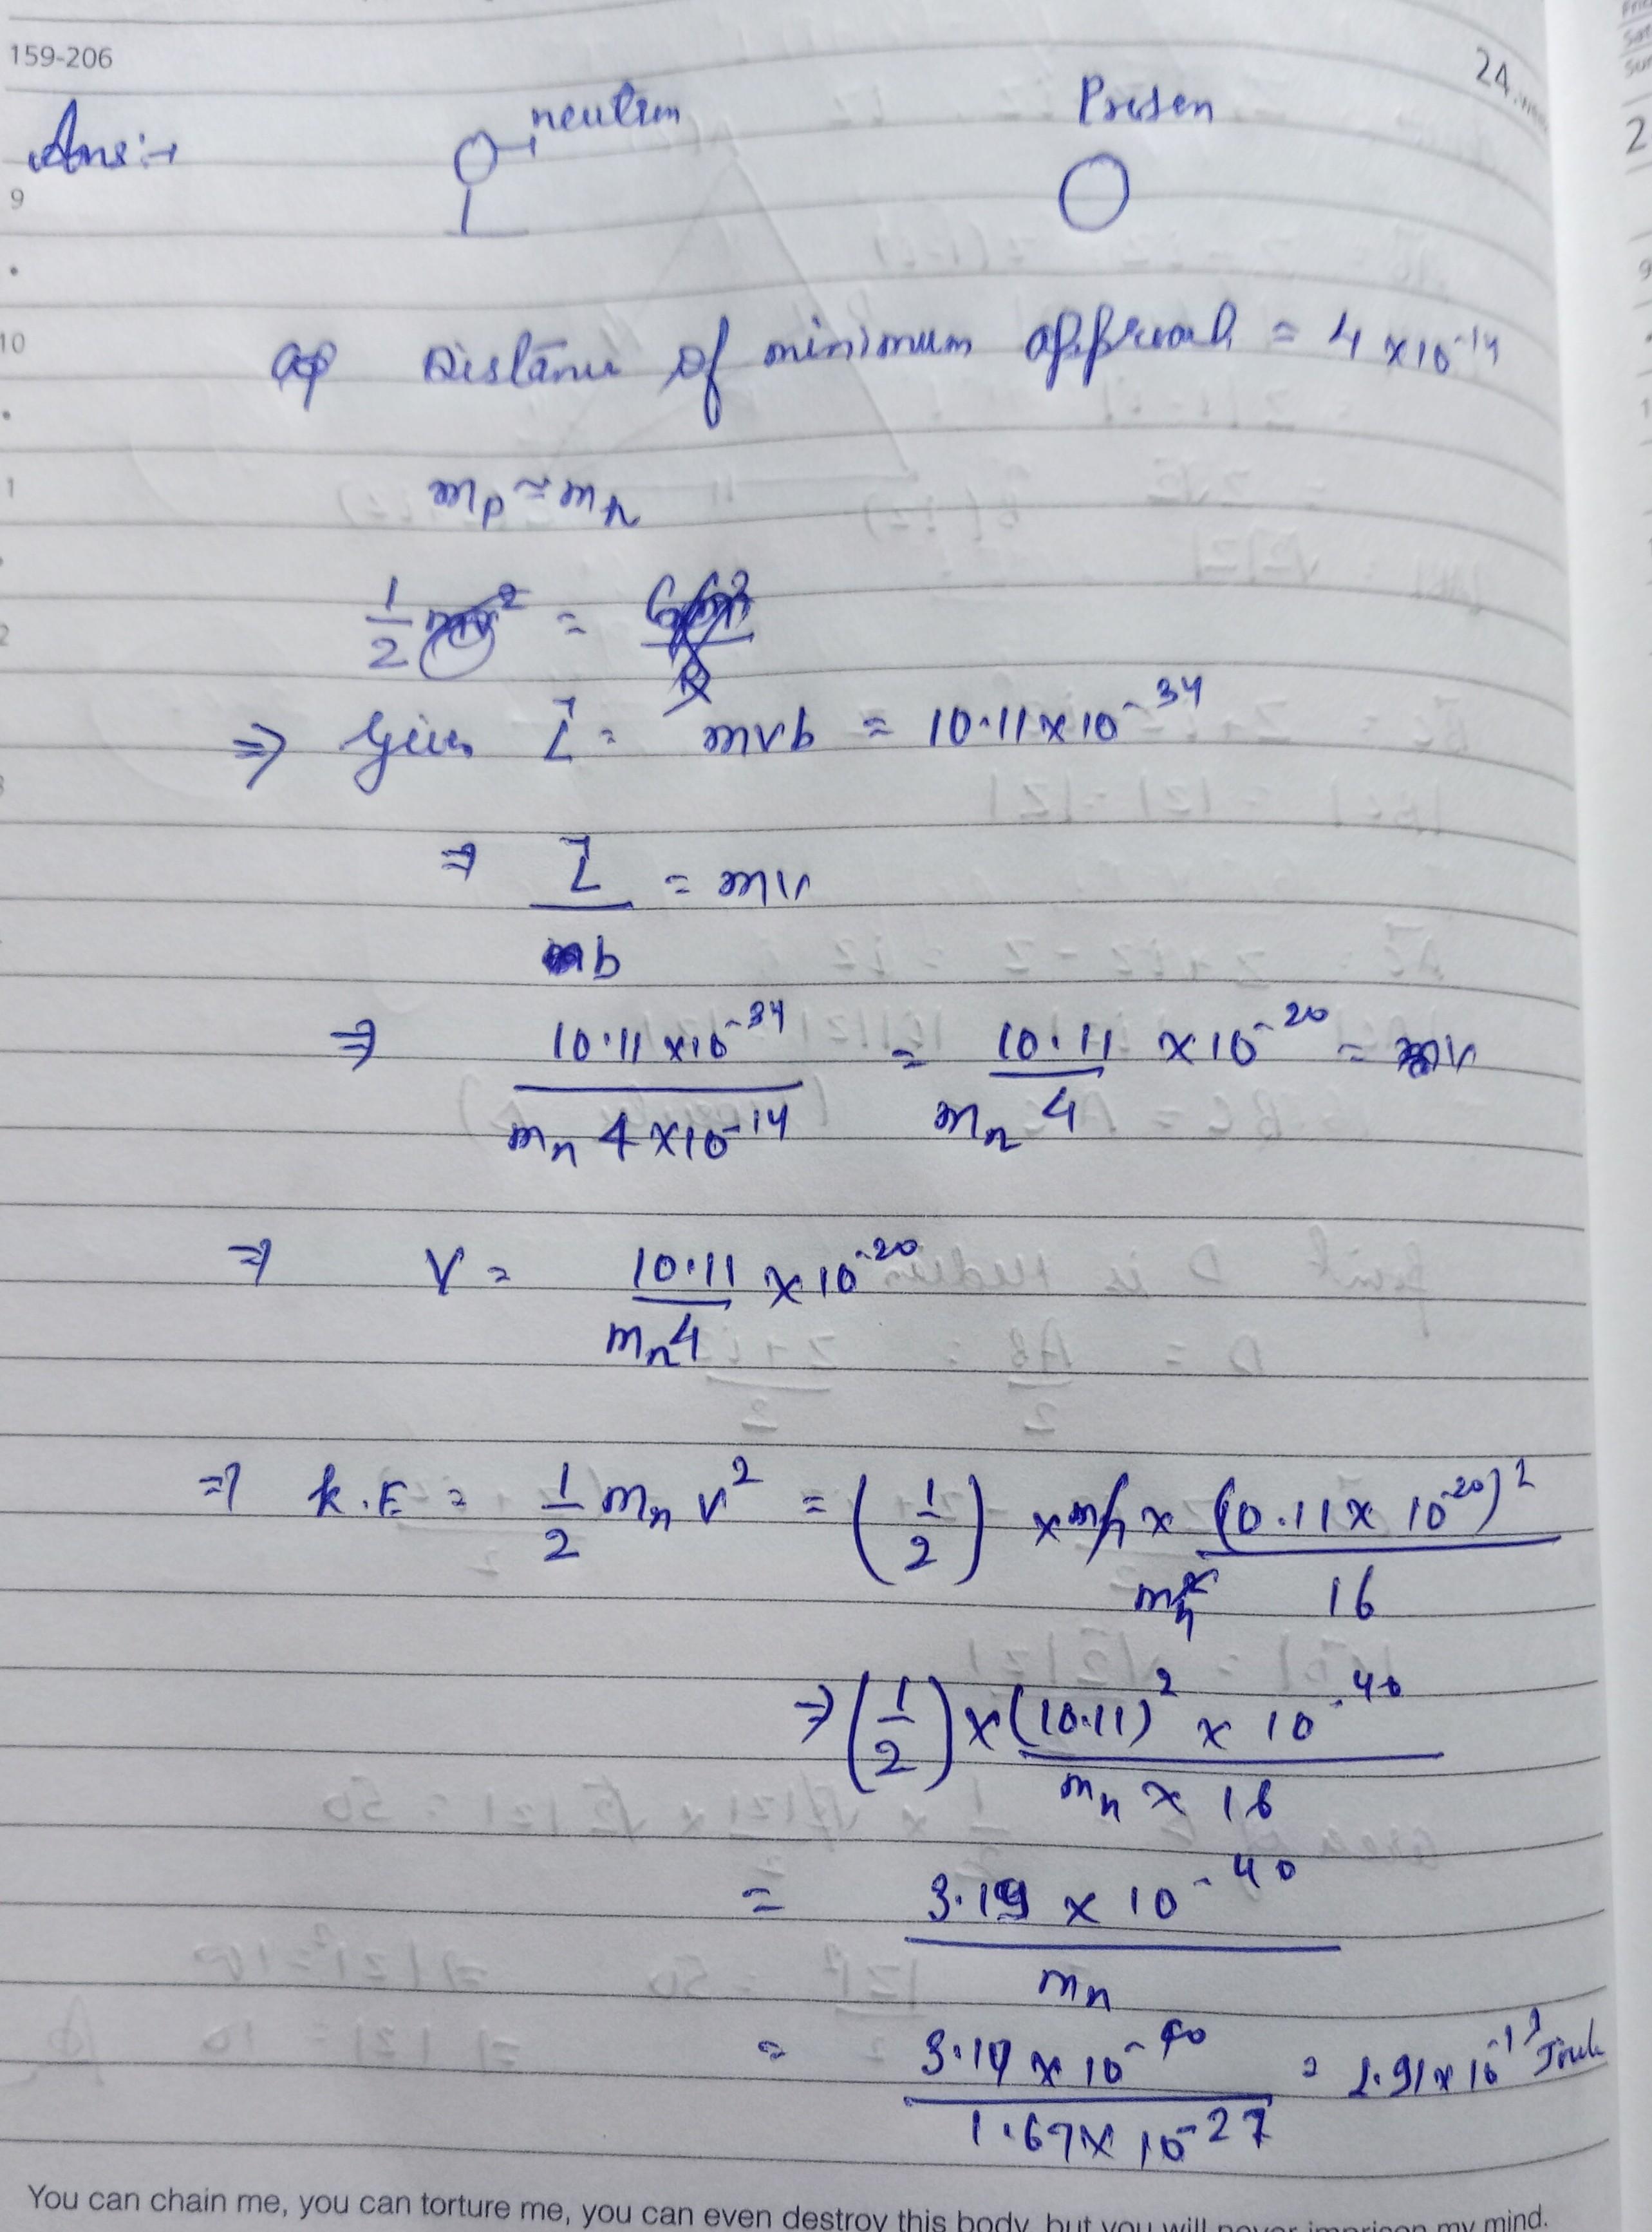 159-206
24
Ans:→
neutron
Proton
9
10
Distance of minimum approach = 4 × 10⁻¹⁴
mₚ ≈ mₙ
1/2 =
⇒ Given L⃗ = mvb = 10.11 × 10⁻³⁴
⇒ L⃗ / b = mv
⇒ 10.11 × 10⁻³⁴ / mₙ 4 × 10⁻¹⁴ = 10.11 / mₙ 4 × 10⁻²⁰ = v
⇒ v = 10.11 / mₙ 4 × 10⁻²⁰
⇒ K.E = 1/2 mₙ v² = (1/2) × mₙ × (10.11 × 10⁻²⁰)² / mₙ² 16
⇒ (1/2) × (10.11)² × 10⁻⁴⁰ / mₙ × 16
= 3.19 × 10⁻⁴⁰ / mₙ
= 3.19 × 10⁻⁴⁰ / 1.67 × 10⁻²⁷ = 1.91 × 10⁻¹³ Joule
You can chain me, you can torture me, you can even destroy this body, but you will never imprison my mind.